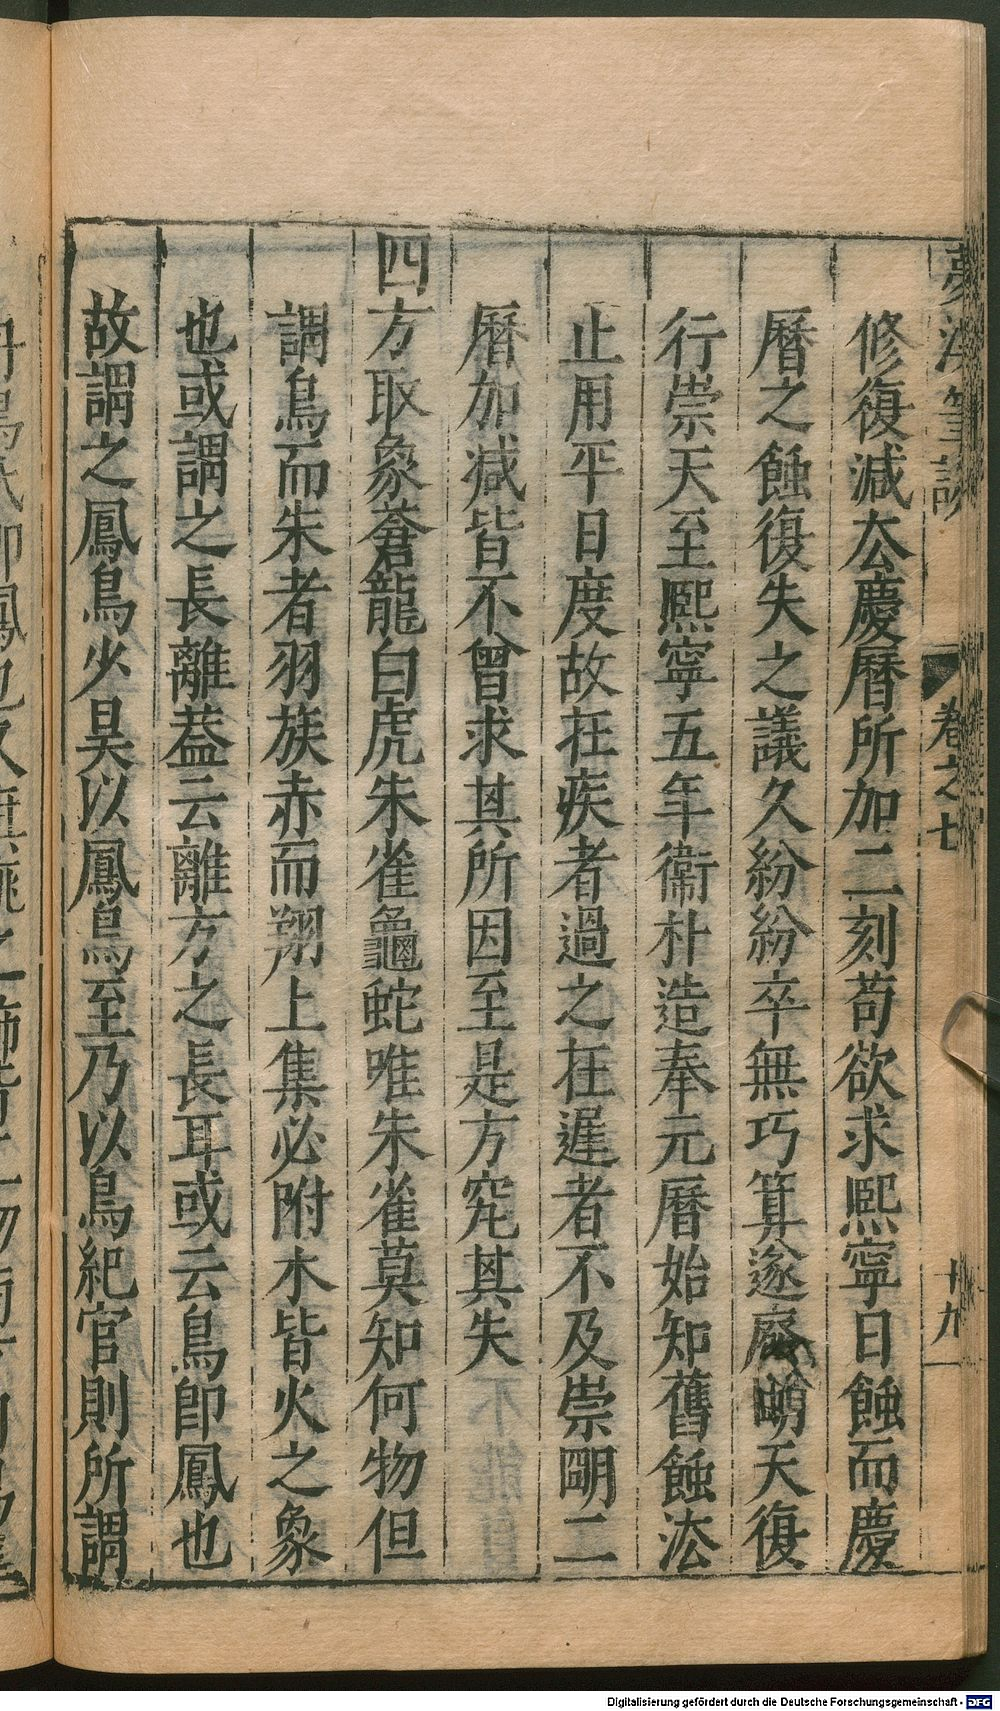 夢溪筆談 卷之七 十九
修復減去慶曆所加二刻苟欲求熙寧日蝕而慶
曆之蝕復失之議久紛紛卒無巧算遂廢朙天復
行崇天至熙寧五年衞朴造奉元曆始知舊蝕法
止用平日度故在疾者過之在遲者不及崇朙二
曆加減皆不曾求其所因至是方究其失
四方取象蒼龍白虎朱雀龜蛇唯朱雀莫知何物但
謂鳥而朱者羽族赤而翔上集必附木皆火之象
也或謂之長離葢云離方之長耳或云鳥卽鳳也
故謂之鳳鳥少昊以鳳鳥至乃以鳥紀官則所謂
Digitalisierung gefördert durch die Deutsche Forschungsgemeinschaft - DFG